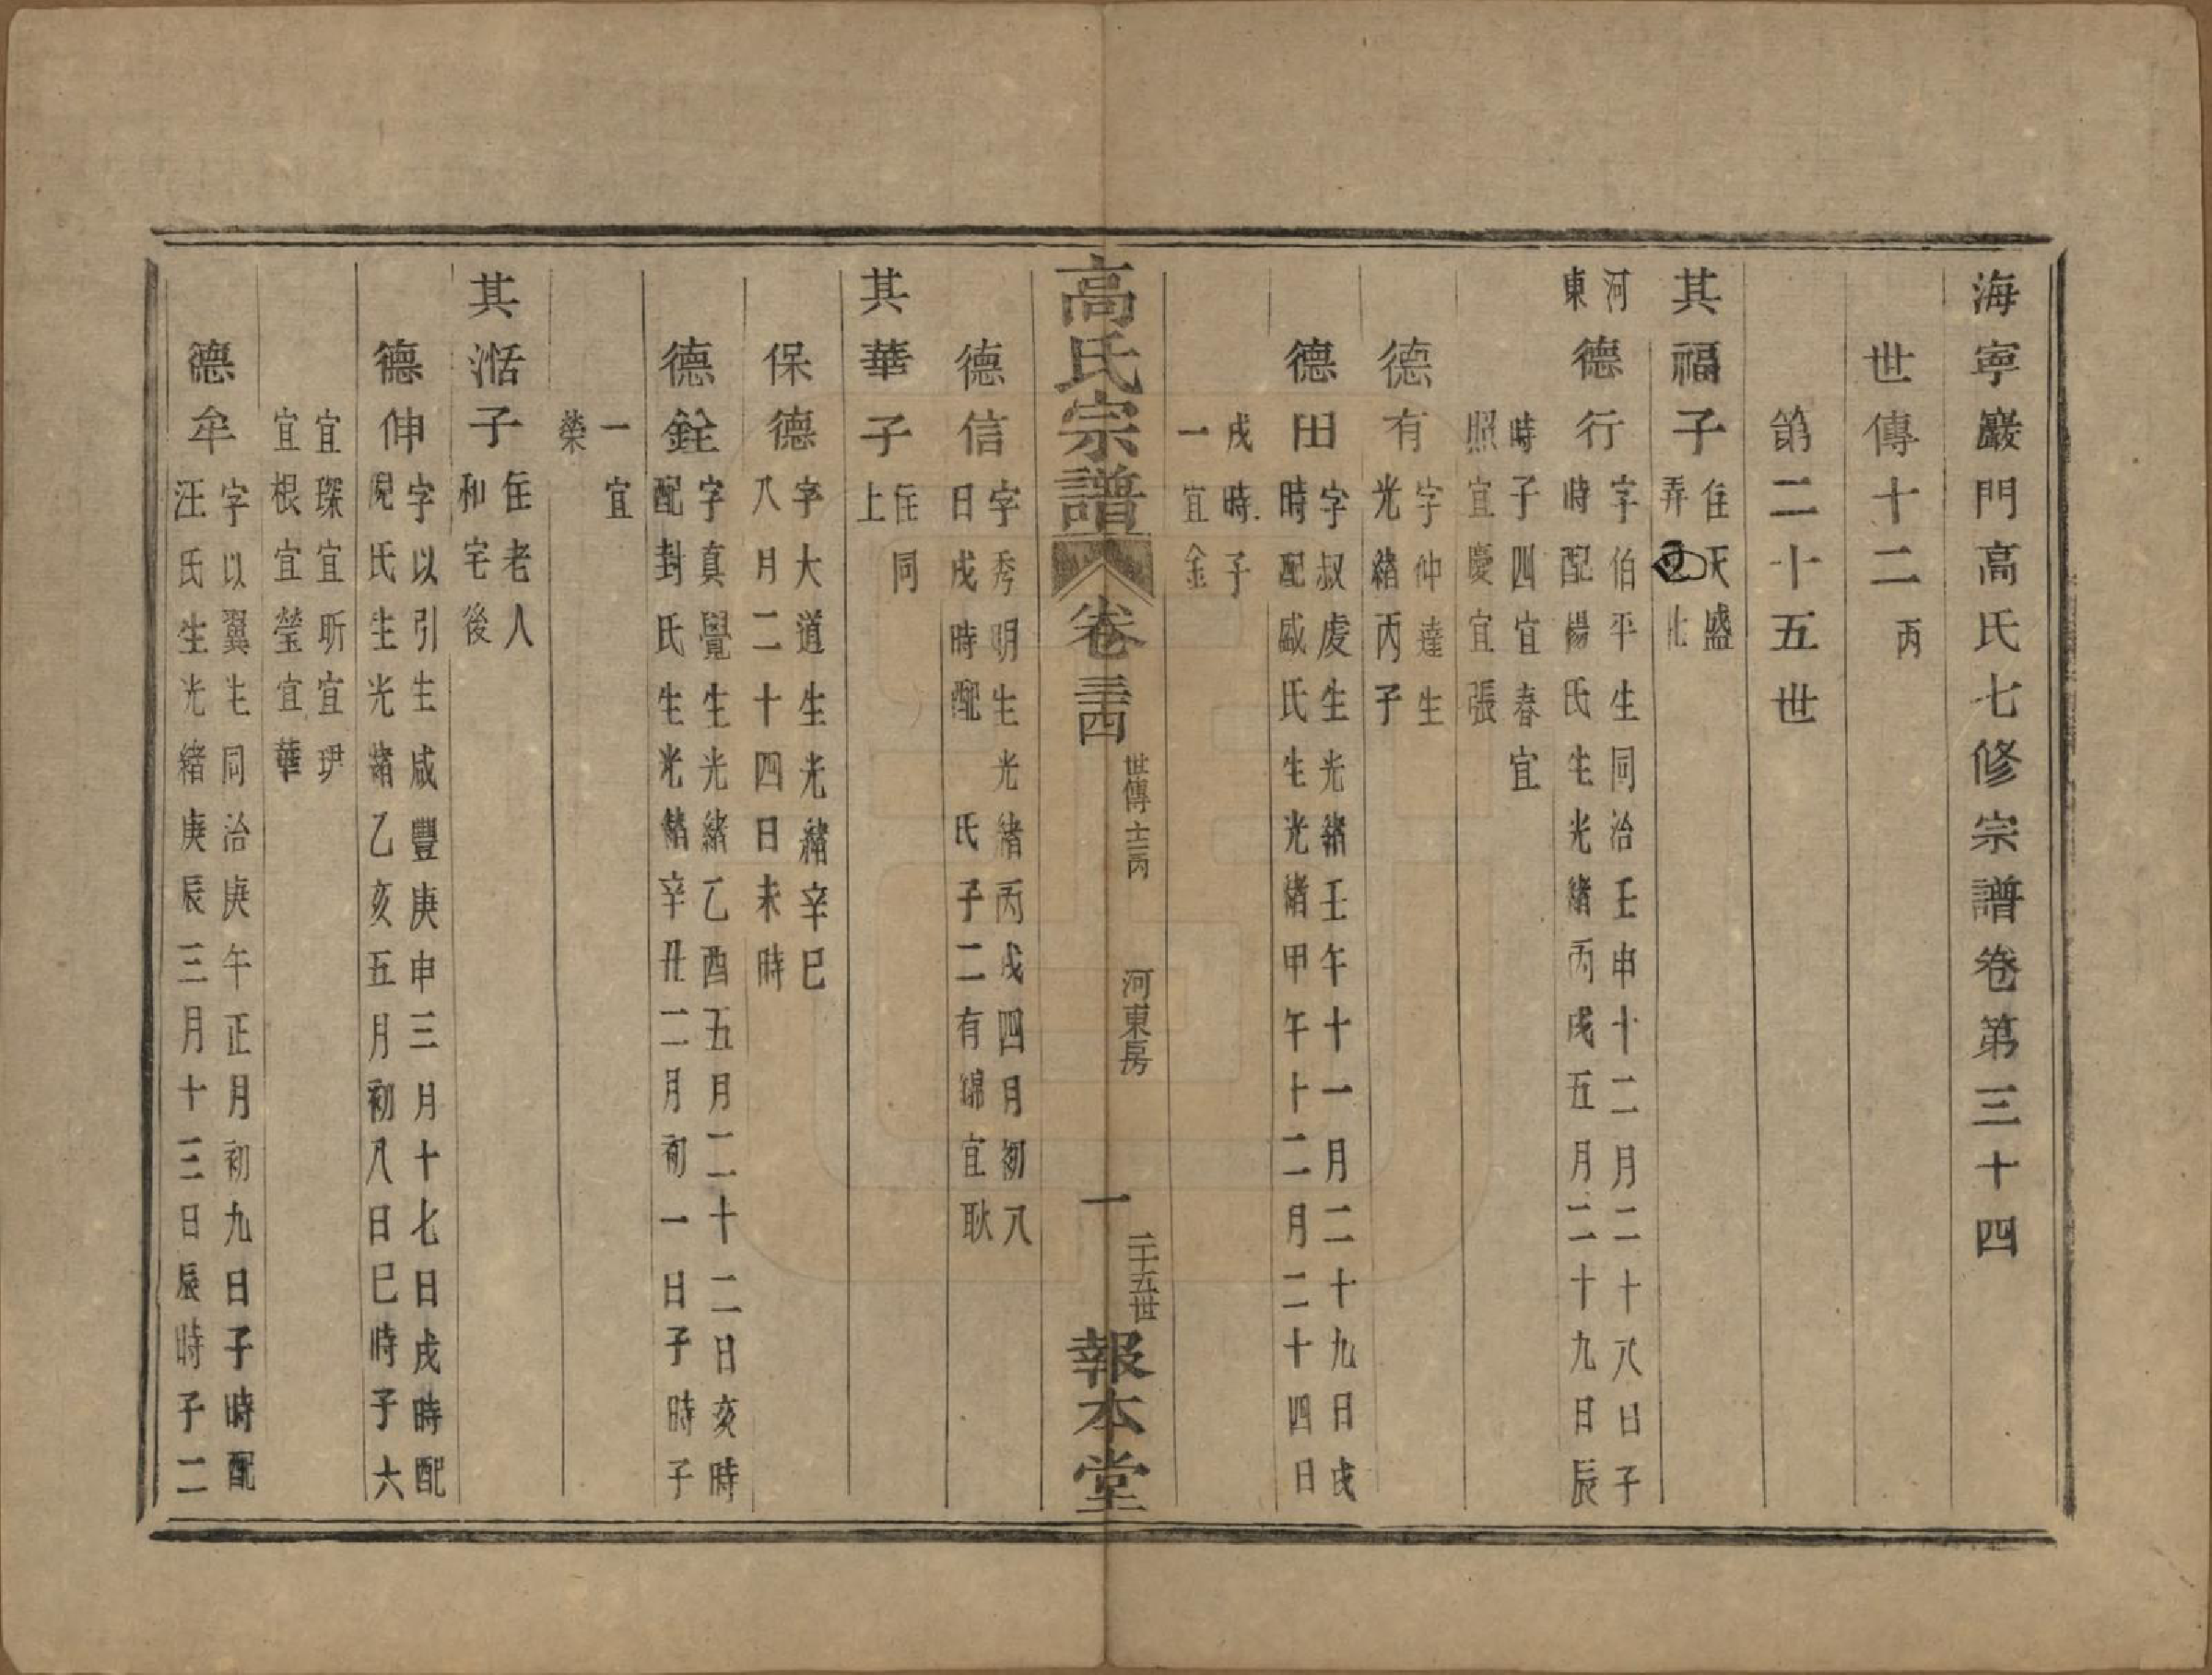 海寧巖門高氏七修宗譜卷第三十四
世傳十二丙
第二十五世
其福子住天盛
弄北
河
東
德行字伯平生同治壬申十二月二十八日子
時配楊氏生光緒丙戌五月二十九日辰
時子四宜春宜
照宜慶宜張
德有字仲達生
光緒丙子
德田字叔虔生光緒壬午十一月二十九日戌
時配戚氏生光緒甲午十二月二十四日
戌時子
一宜金
高氏宗譜 卷三四 世傳十二丙 河東房 一 二十五世 報本堂
德信字秀明生光緒丙戌四月初八
日戌時配 氏子二有錦宜耿
其華子住同
上
保德字大道生光緒辛巳
八月二十四日未時
德銓字真覺生光緒乙酉五月二十二日亥時
配封氏生光緒辛丑二月初一日子時子
一宜
榮
其湉子住老人
和宅後
德伸字以引生咸豐庚申三月十七日戌時配
倪氏生光緒乙亥五月初八日巳時子六
宜琛宜昕宜玥
宜根宜瑩宜華
德牟字以翼生同治庚午正月初九日子時配
汪氏生光緒庚辰三月十三日辰時子二